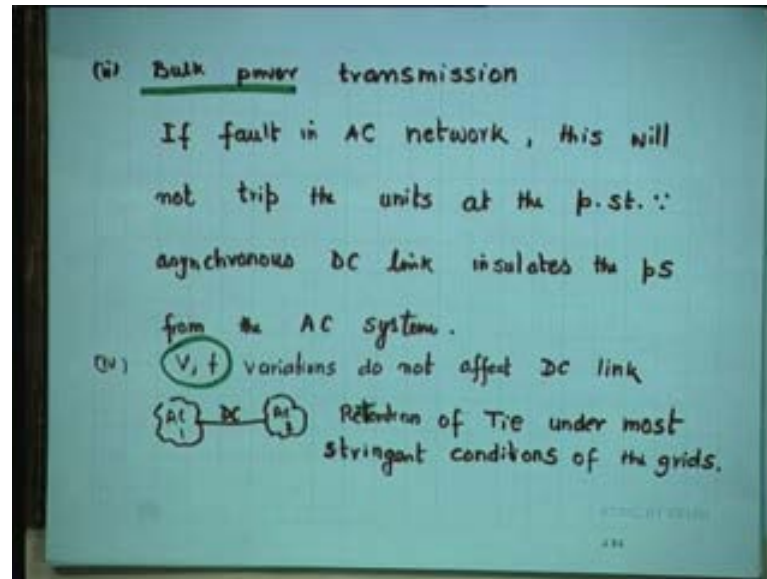 (iii) Bulk power transmission
If fault in AC network, this will
not trip the units at the p.st. ∵
asynchronous DC link insulates the ps
from the AC system.
(iv) V, f variations do not affect DC link
AC 1 DC AC 2 Retention of Tie under most
stringent conditions of the grids.